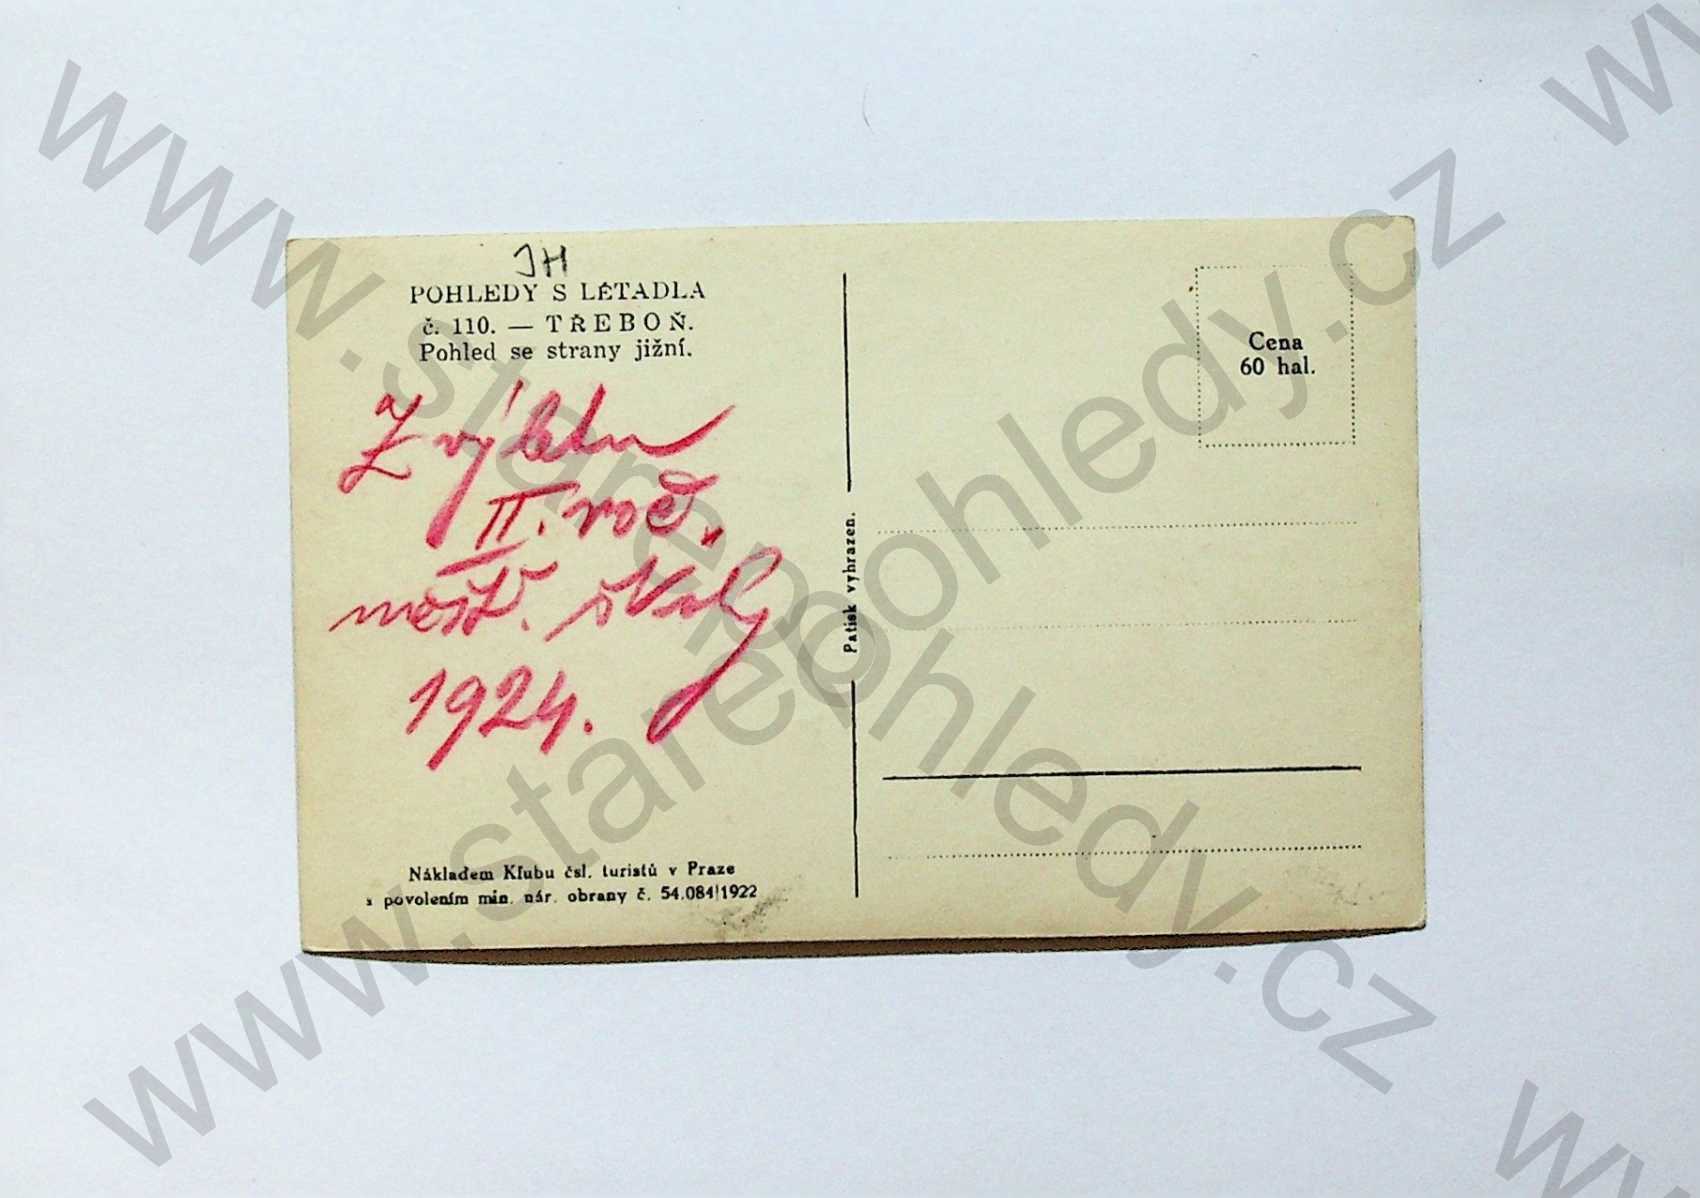 JH
POHLEDY S LETADLA
č. 110. — TŘEBOŇ.
Pohled se strany jižní.
Z výletu
II. roč.
měšť. školy
1924.
Nákladem Klubu čsl. turistů v Praze
s povolením min. nár. obrany č. 54.084|1922
Patisk vyhrazen.
Cena
60 hal.
www.starepohledy.cz
www.starepohledy.cz